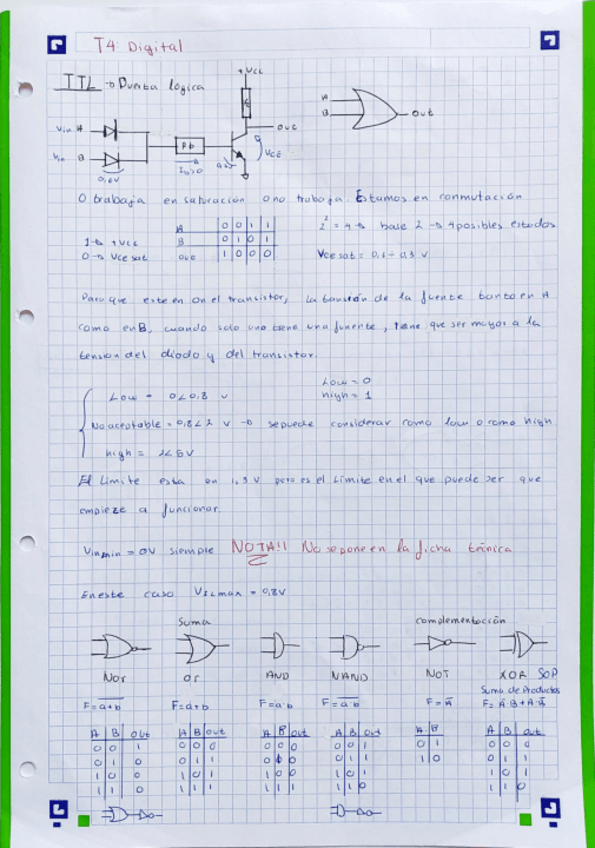 T4: Digital
TTL → Puerta lógica
+Vcc
Vin A
Vin B
0,6V
Rb
Ib>0
out
VCE
A
B
out
O trabaja en saturación o no trabaja. Estamos en conmutación
1 → +Vcc
0 → Vce sat
A 0 0 1 1
B 0 1 0 1
out 1 0 0 0
2² = 4 → base 2 → 4 posibles estados
Vce sat = 0,1 ÷ 0,3 V
Para que este en on el transistor, la tensión de la fuente tanto en A
como en B, cuando solo uno tiene una fuente, tiene que ser mayor a la
tension del diodo y del transistor.
Low = 0<0,8 v
Low = 0
high = 1
No aceptable = 0,8<2 v → se puede considerar como low o como high
high = 2<5v
El limite esta en 1,3 V pero es el limite en el que puede ser que
empieze a funcionar.
Vin min = 0V siempre NOTA!! No se pone en la ficha técnica
En este caso VIL max = 0,8V
Suma
complementación
Nor or AND NAND NOT XOR SOP
Suma de Productos
F = a+b F = a+b F = a·b F = a·b F = A̅ F = A̅·B + A·B̅
A B out A B out A B out A B out A B A B out
0 0 1 0 0 0 0 0 0 0 0 1 0 1 0 0 0
0 1 0 0 1 1 0 1 0 0 1 1 1 0 0 1 1
1 0 0 1 0 1 1 0 0 1 0 1 1 0 1
1 1 0 1 1 1 1 1 1 1 1 0 1 1 0